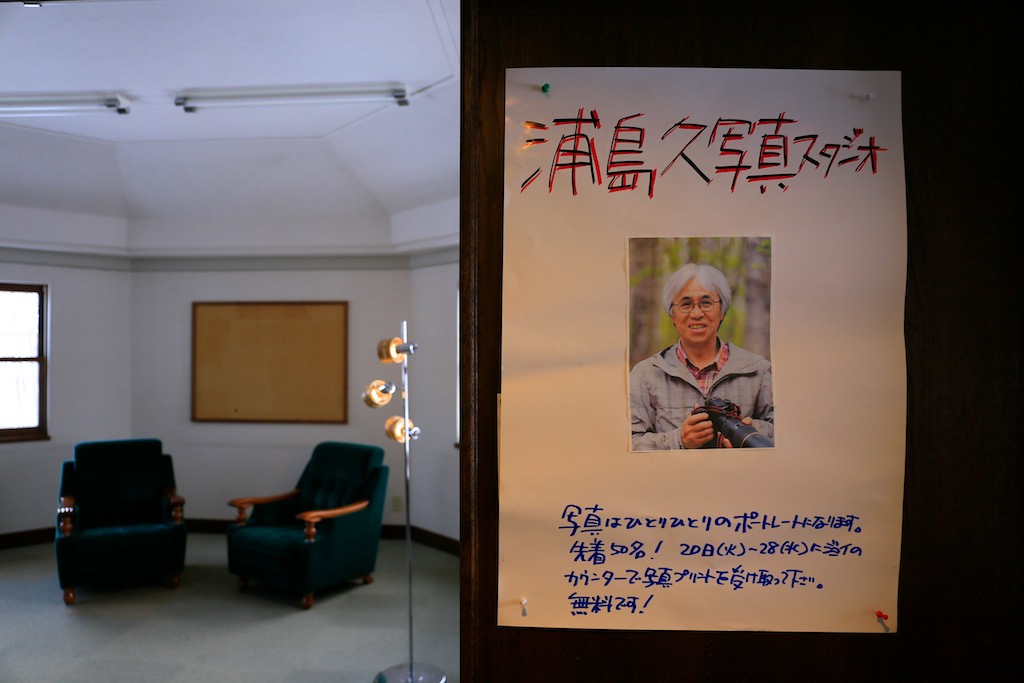 浦島久写真スタジオ
写真はひとりひとりのポートレートになります。
先着50名! 20日(火)~28(水)に当イの
カウンターで写真プリントを受け取って下さい。
無料です!